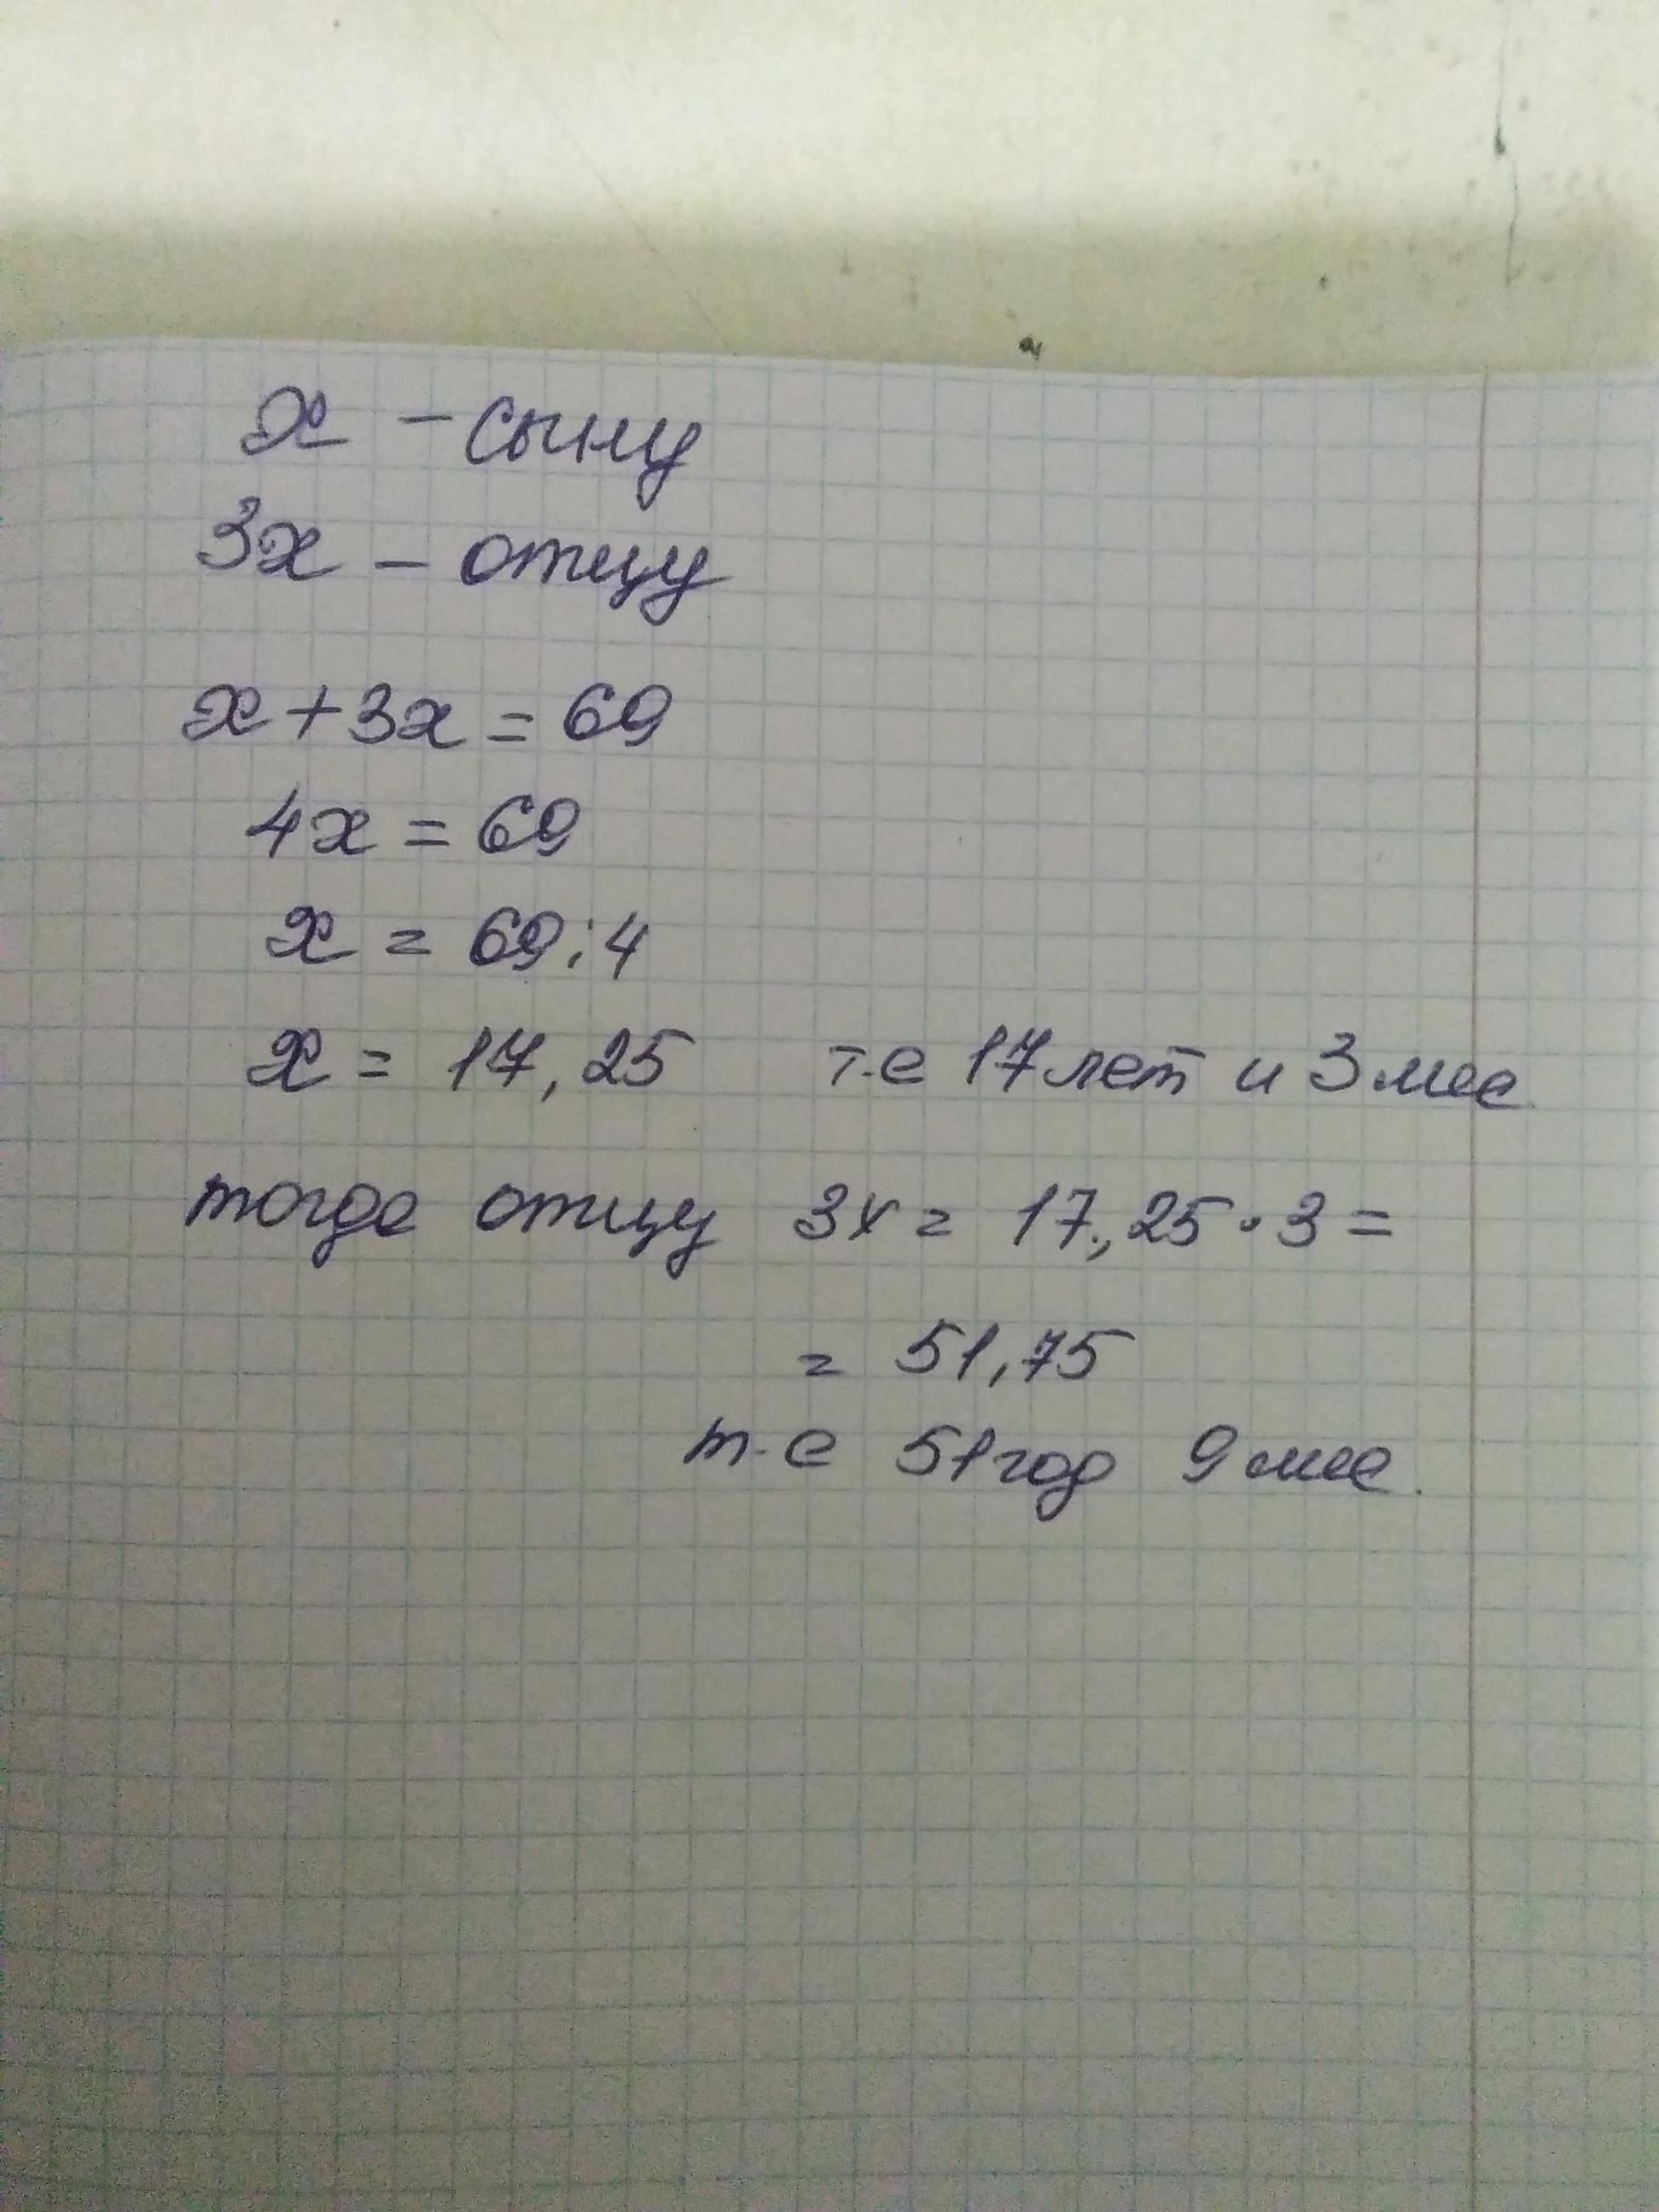 x - сыну
3x - отцу
x + 3x = 69
4x = 69
x = 69 : 4
x = 17,25 т.е 17 лет и 3 мес
тогда отцу 3x = 17,25 • 3 =
= 51,75
т.е 51 год 9 мес.